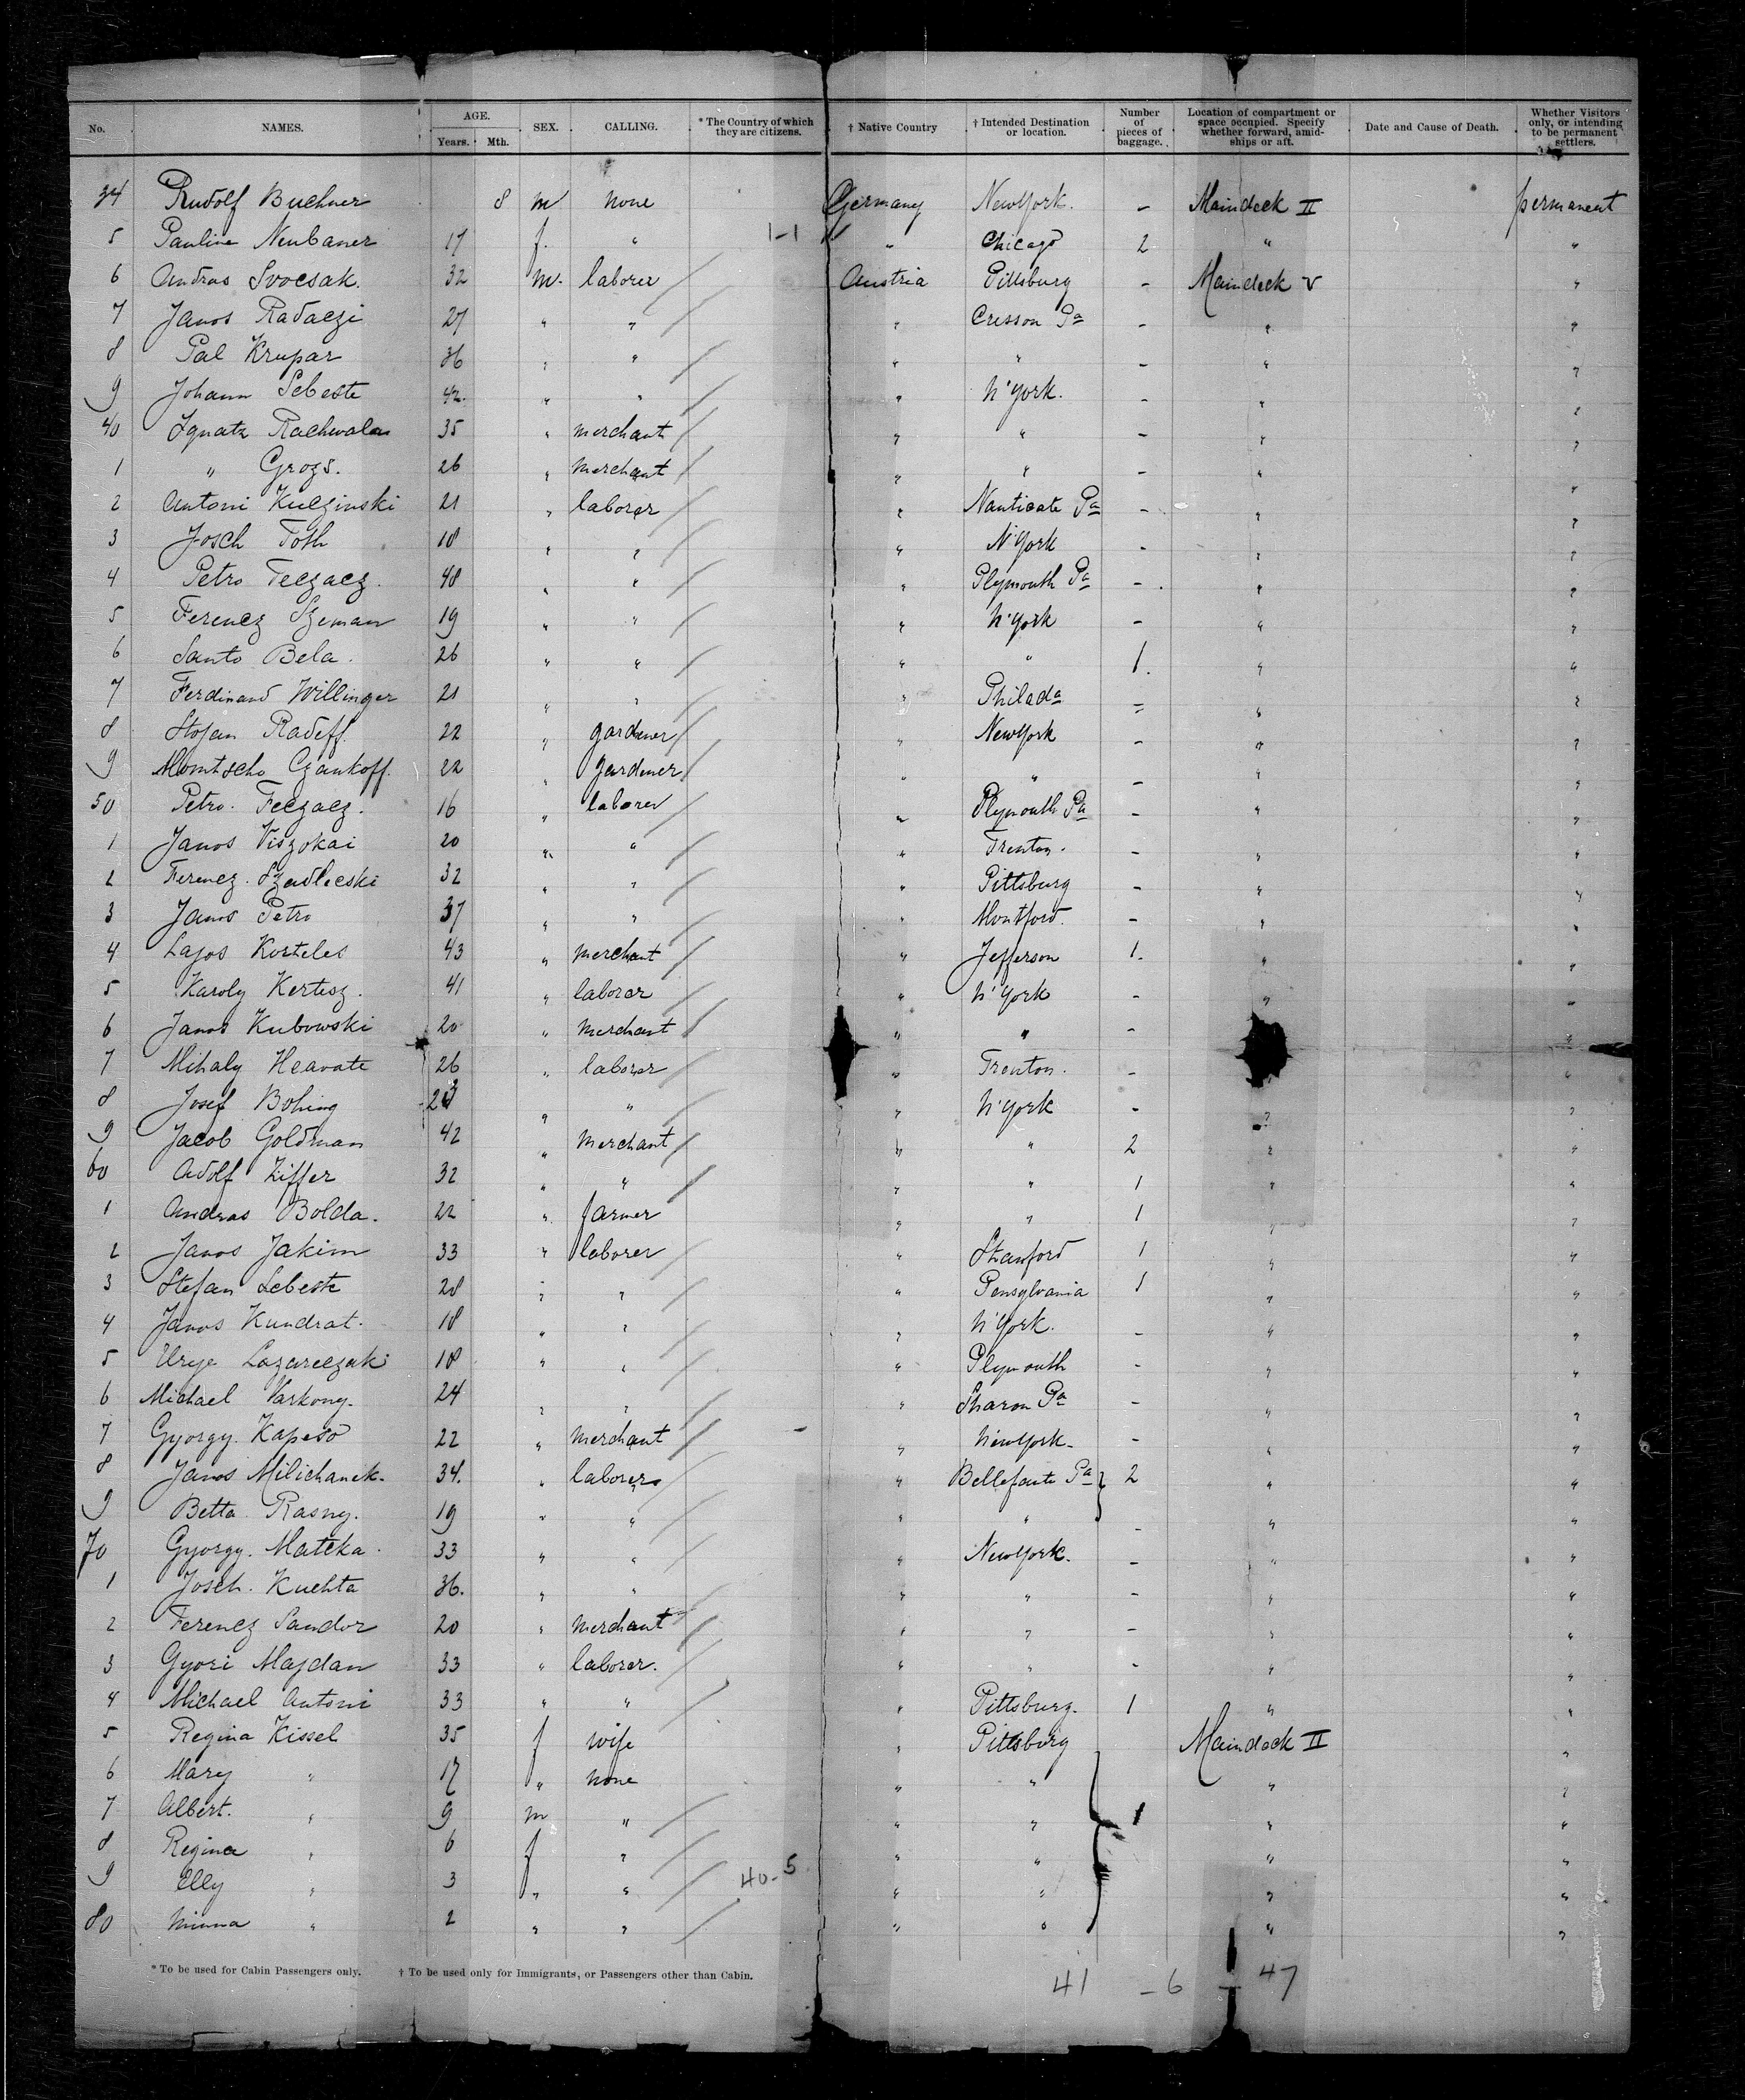 No. NAMES. AGE. Years. Mth. SEX. CALLING. * The Country of which they are citizens. † Native Country † Intended Destination or location. Number of pieces of baggage. Location of compartment or space occupied. Specify whether forward, amidships or aft. Date and Cause of Death. Whether Visitors only, or intending to be permanent settlers.
34 Rudolf Buchner 8 m none Germany NewYork. – Maindeck II permanent
5 Pauline Neubauer 17 f. " 1-1 " Chicago 2 " "
6 Andras Svocsak. 32 m. laborer Austria Pittsburg – Maindeck V "
7 Janos Radaczi 27 " " " Cresson Pa – " "
8 Pal Krupar 36 " " " " – " "
9 Johann Sebeste 42. " " " N'York. – " "
40 Ignatz Rachwalan 35 " merchant " " – " "
1 " Grozs. 26 " merchant " " – " "
2 Antoni Kulczinski 21 " laborer " Nanticate Pa – " "
3 Josch Toth 18 " " " N'York – " "
4 Petro Feczacz. 48 " " " Plymouth Pa – " "
5 Ferencz Szeman 19 " " " N'York – " "
6 Santo Bela. 26 " " " " 1. " "
7 Ferdinand Willinger 21 " " " Philada = " "
8 Stojan Radeff. 22 " gardener " NewYork – " "
9 Momtscho Czankoff. 22 " gardener " " – " "
50 Petro. Feczacz. 16 " laborer " Plymouth Pa – " "
1 Janos Viszokai 20 " " " Trenton. – " "
2 Ferencz. Szedlecski 32 " " " Pittsburg – " "
3 Janos Petro 37 " " " Montford. – " "
4 Lajos Korteles 43 " merchant " Jefferson 1. " "
5 Karoly Kertesz. 41 " laborer " N'York – " "
6 Janos Kubowski 20 " merchant " " – "
7 Mihaly Heavate 26 " laborer " Trenton. – "
8 Josef Bohing " " " N'York – " "
9 Jacob Goldman 42 " merchant " " 2 " "
60 Adolf Ziffer 32 " " " " 1 " "
1 Andras Bolda. 22 " farmer " " 1 " "
2 Janos Jakim 33 " laborer " Stamford 1 " "
3 Stefan Sebeste 28 " " " Pensylvania 1 " "
4 Janos Kundrat. 18 " " " N'York. – " "
5 Urye Lazareczaki 18 " " " Plymouth – " "
6 Michael Varkony. 24 " " " Sharon Pa – " "
7 Gyorgy. Kapeso 22 " merchant " NewYork. – " "
8 Janos Milichanek. 34. " laborer " Bellefante Pa 2 " "
9 Betta Rasny. 19 " " " " " "
70 Gyorgy. Mateka. 33 " " " NewYork. – " "
1 Josch. Kuchta 36. " " " " – " "
2 Ferencz Sandor 20 " merchant " " – " "
3 Gyori Majdan 33 " laborer. " " – " "
4 Michael Antoni 33 " " " Pittsburg. 1 " "
5 Regina Kissel 35 f wife " Pittsburg Maindeck II "
6 Mary " 17 " none " " " "
7 Albert. " 9 m " " " 1 " "
8 Regina " 6 f " " " " "
9 Elly " 3 " " 40-5 " " " "
80 Minna " 2 " " " " " "
* To be used for Cabin Passengers only. † To be used only for Immigrants, or Passengers other than Cabin.
41 – 6 – 47